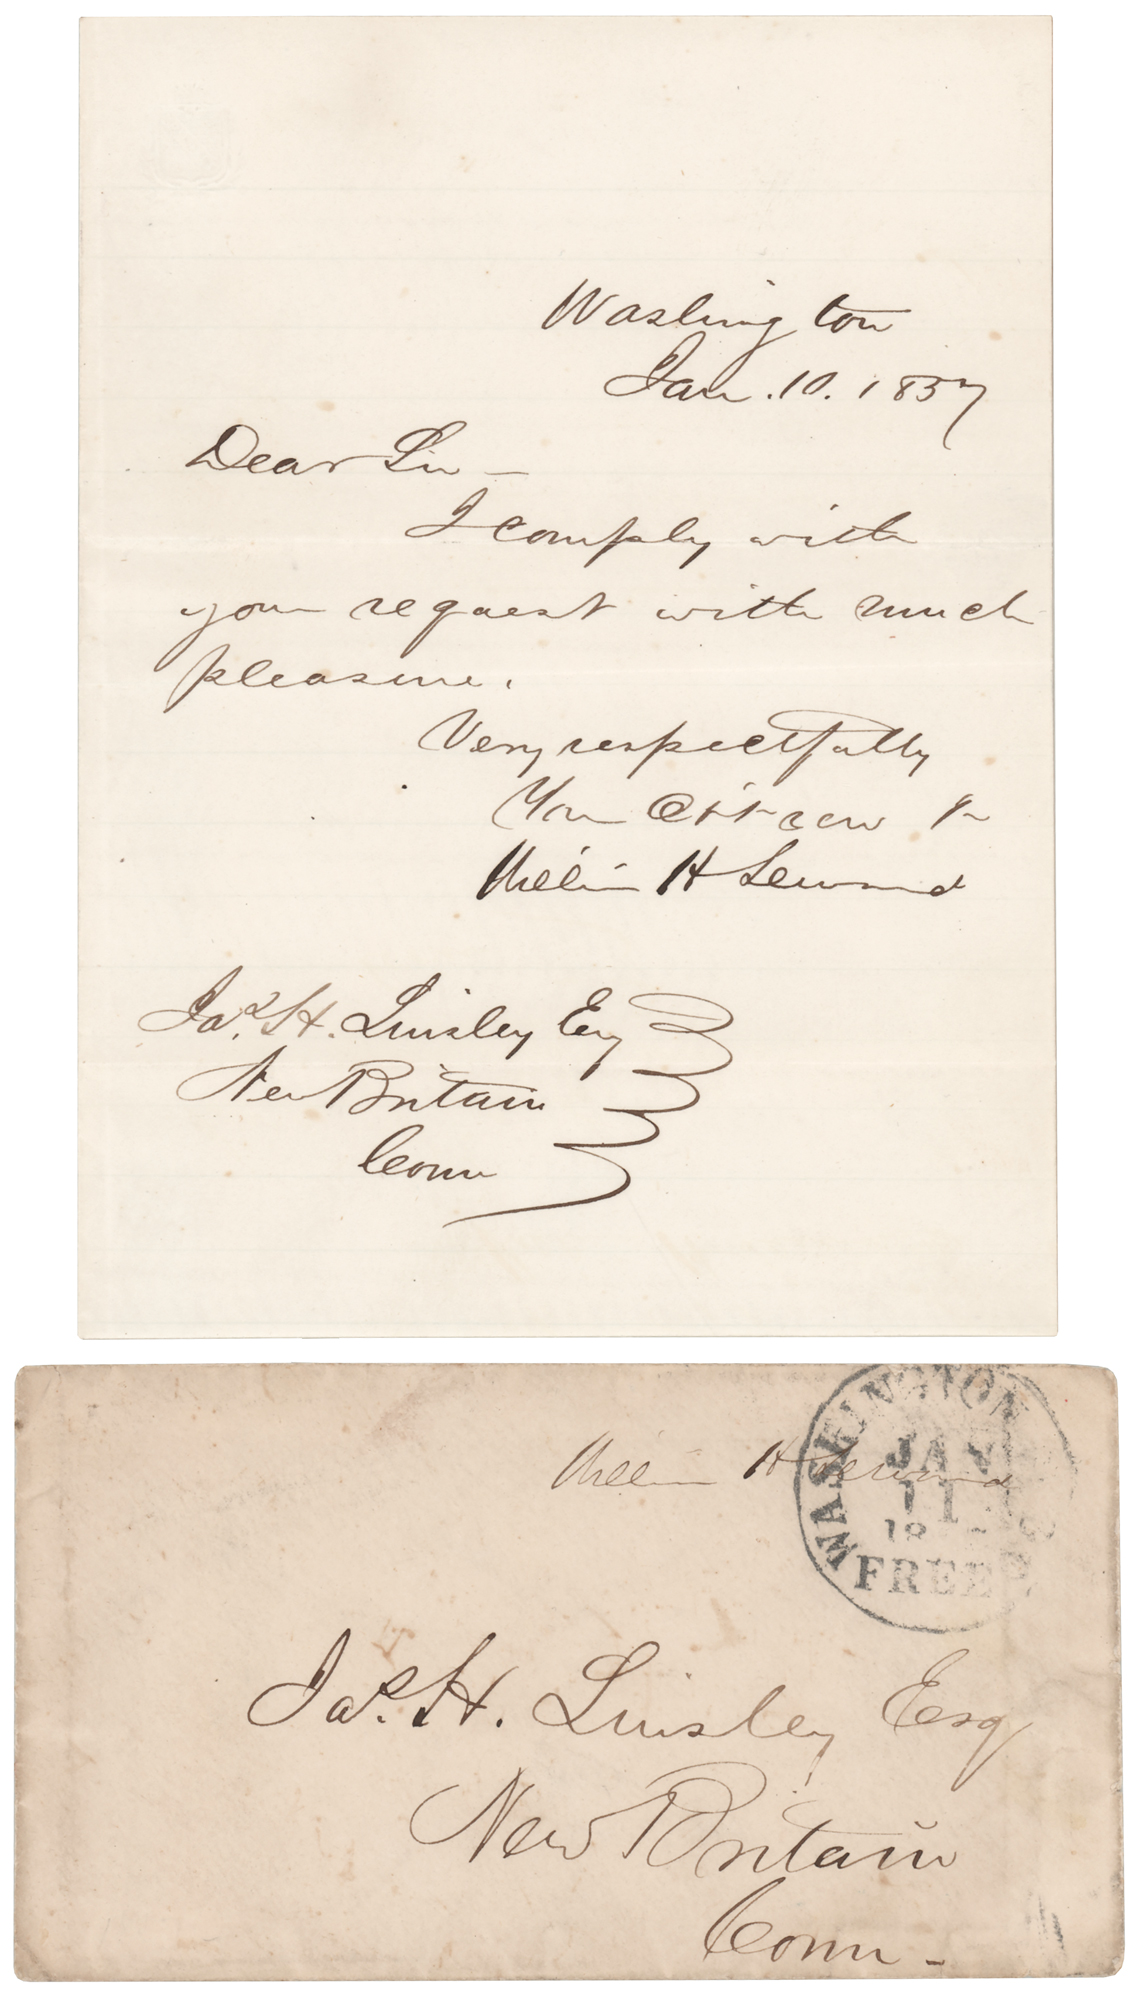 Washington
Jan. 10. 1857
Dear Sir —
I comply with
your request with much
pleasure.
Very respectfully
Your
William H Seward
Jas. H. Linsley Esq
New Britain
Conn
William H Seward
WASHINGTON
JAN
11
FREE
Jas. H. Linsley Esq
New Britain
Conn -